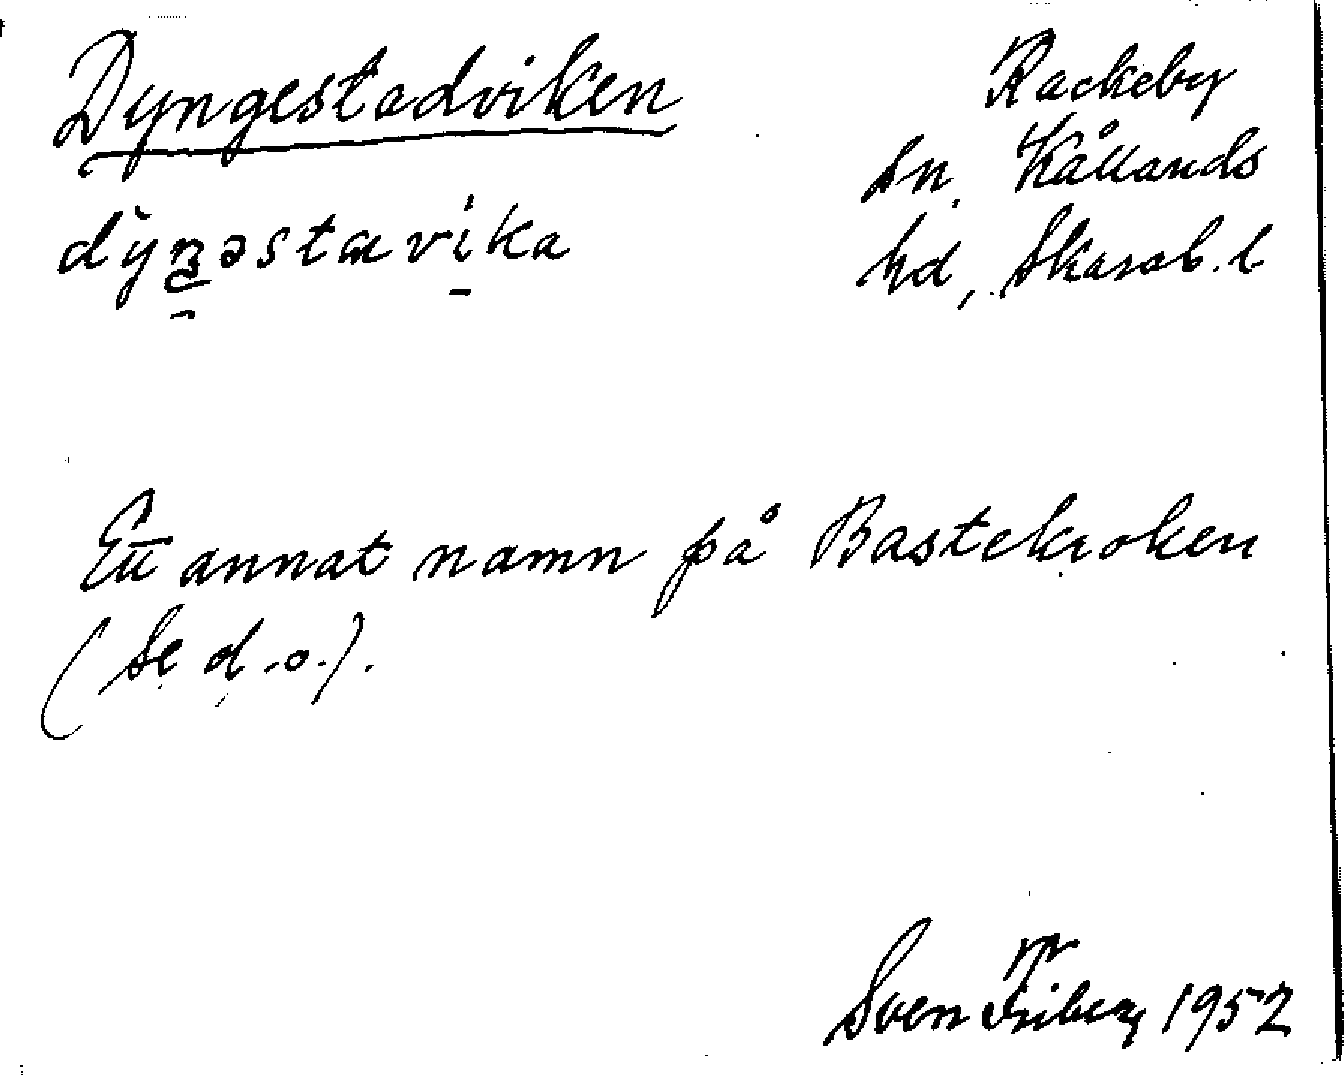 Dyngestadviken
Rackeby
sn, Kållands
hd, Skarab. l
dyŋəstavika
Ett annat namn på Bastekroken
(Se d.o.).
Sven Friberg 1952